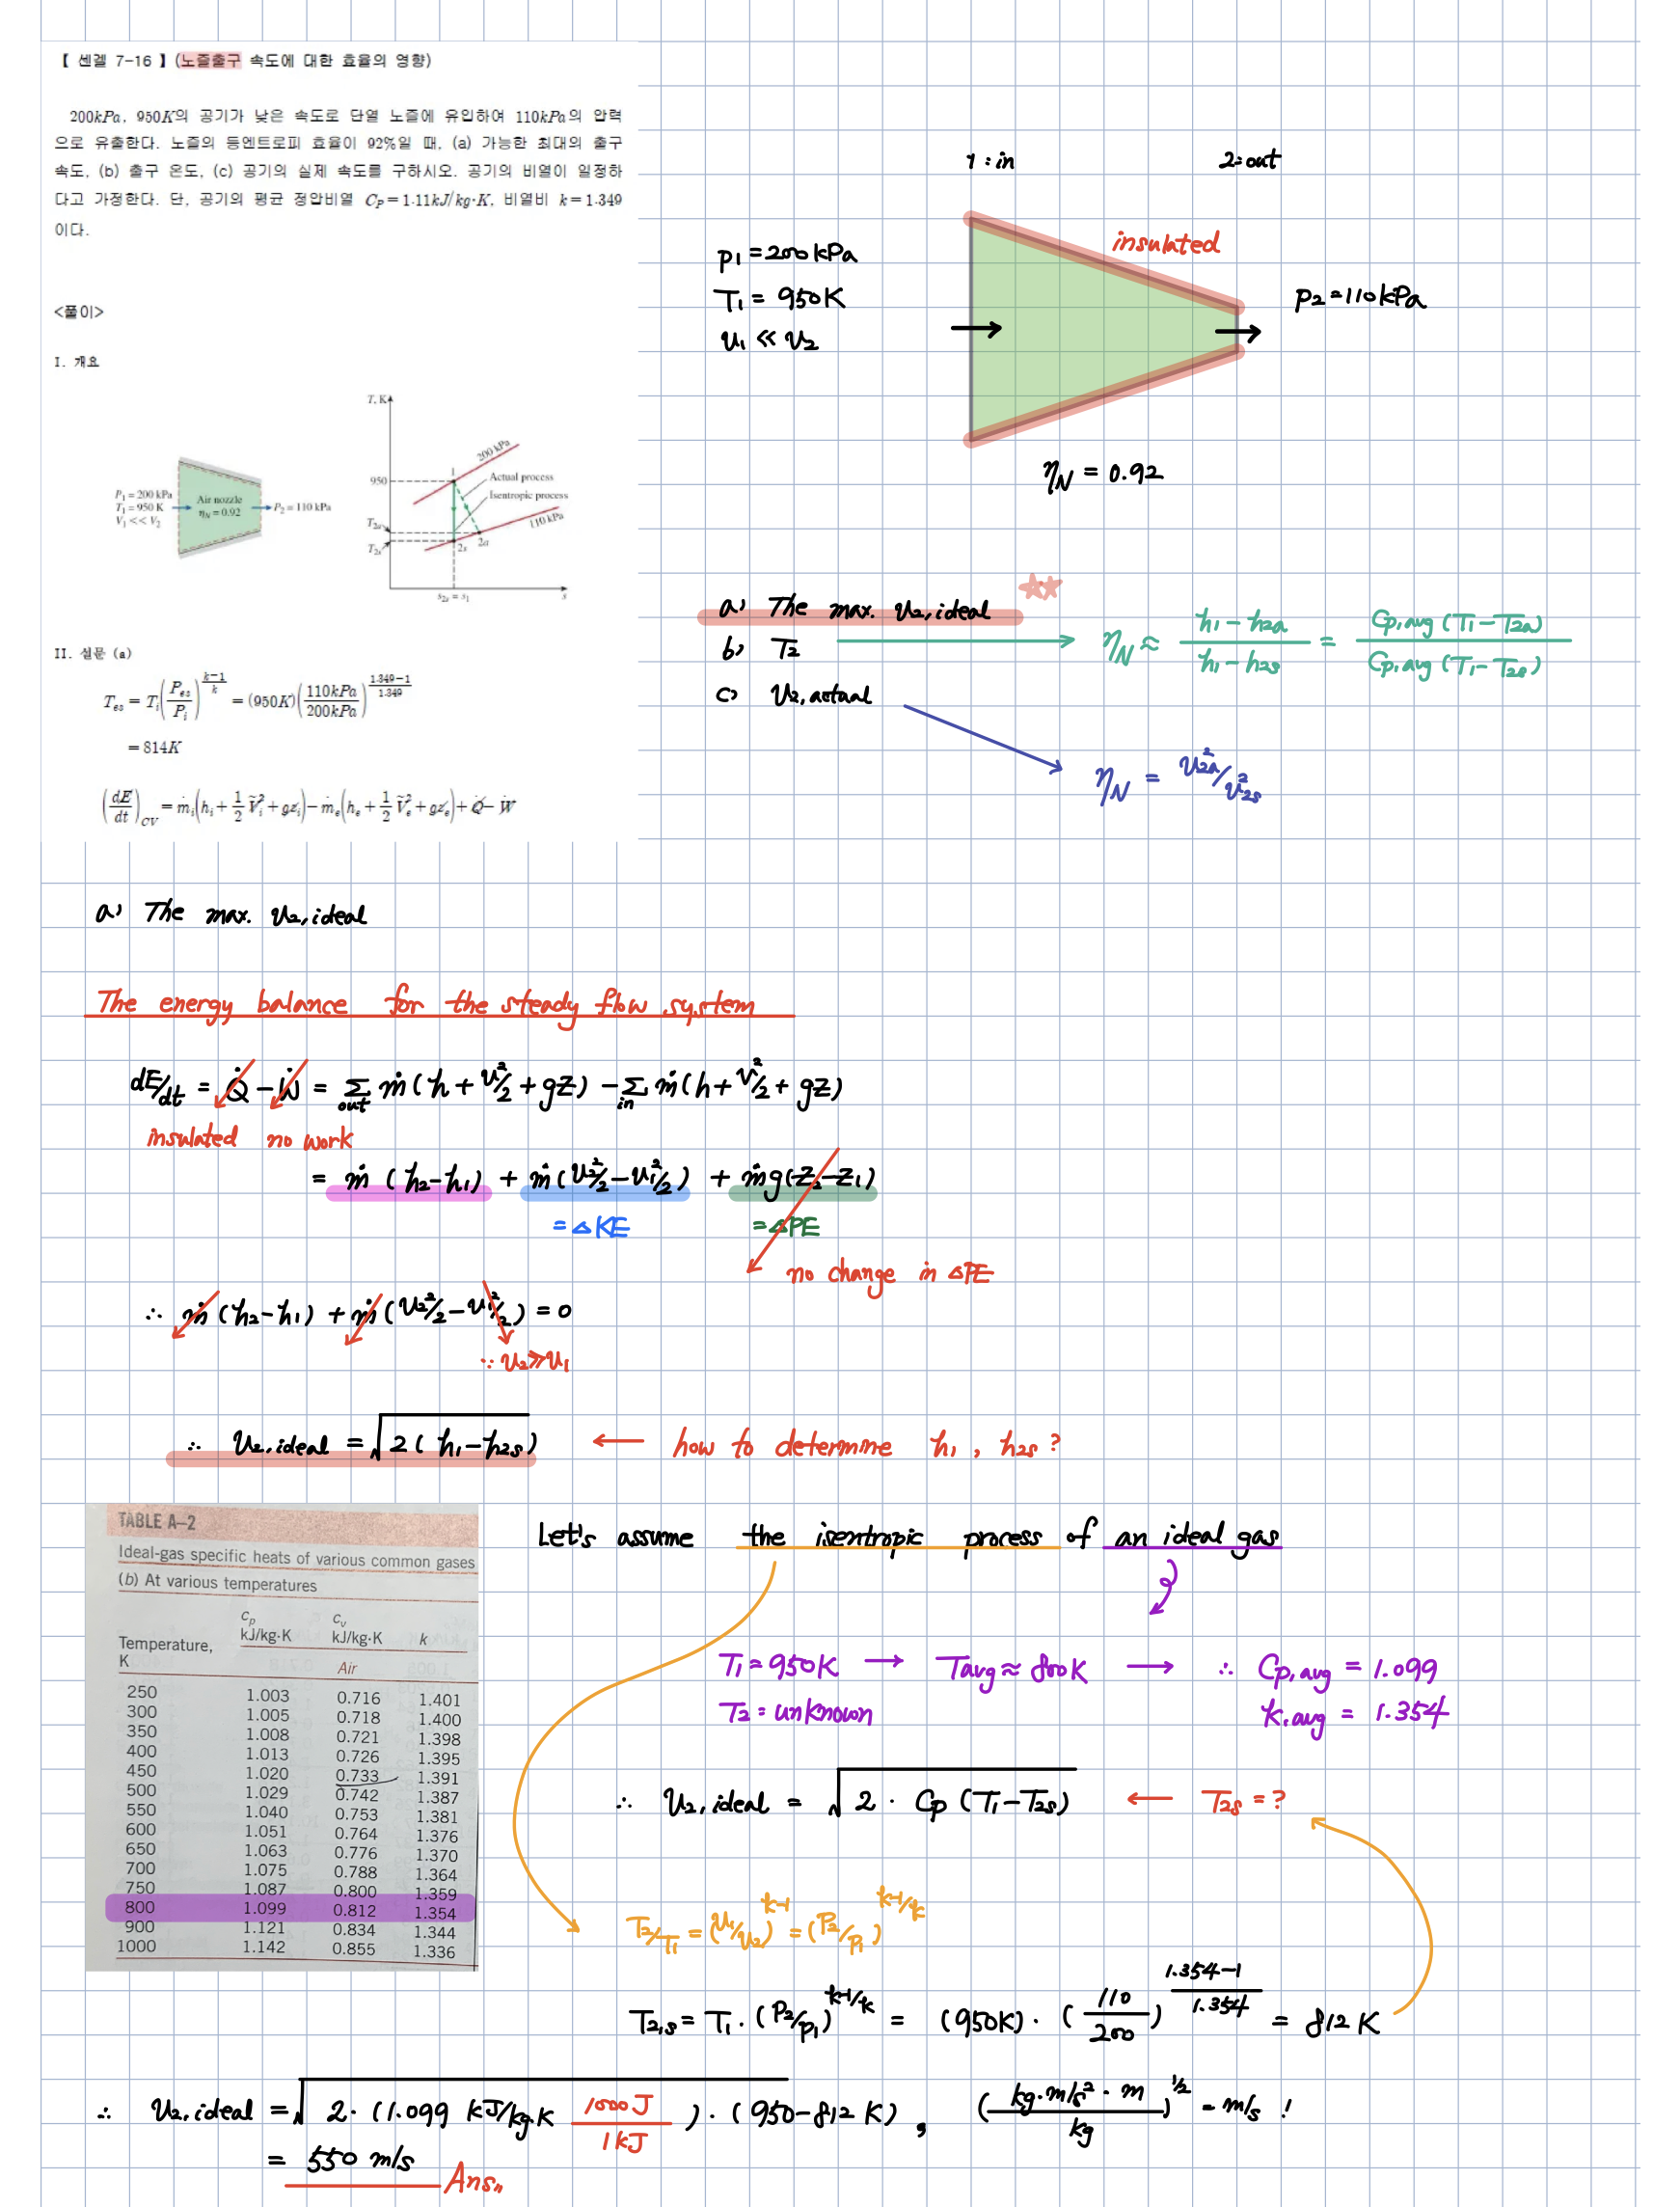 【 센겔 7-16 】(노즐출구 속도에 대한 효율의 영향)
200kPa, 950K의 공기가 낮은 속도로 단열 노즐에 유입하여 110kPa의 압력
으로 유출한다. 노즐의 등엔트로피 효율이 92%일 때, (a) 가능한 최대의 출구
속도, (b) 출구 온도, (c) 공기의 실제 속도를 구하시오. 공기의 비열이 일정하
다고 가정한다. 단, 공기의 평균 정압비열 C_P = 1.11kJ/kg·K, 비열비 k = 1.349
이다.
<풀이>
I. 개요
P₁ = 200 kPa
T₁ = 950 K
V₁ << V₂
Air nozzle
η_N = 0.92
P₂ = 110 kPa
T, K
950
T₂ₐ
T₂ₛ
1
200 kPa
Actual process
Isentropic process
110 kPa
2s
2a
s₂ₛ = s₁
s
II. 설문 (a)
T_es = T_i (P_es/P_i)^((k-1)/k) = (950K)(110kPa/200kPa)^((1.349-1)/1.349)
= 814K
(dE/dt)_CV = ṁ_i(h_i + 1/2 Ṽ_i² + gz_i) - ṁ_e(h_e + 1/2 Ṽ_e² + gz_e) + Q̇ - Ẇ
1 : in
2 : out
P1 = 200 kPa
T1 = 950 K
v1 ≪ v2
insulated
P2 = 110 kPa
η_N = 0.92
a) The max. v2, ideal
b) T2
η_N ≈ (h1 - h2a)/(h1 - h2s) = Cp,avg (T1 - T2a)/Cp,avg (T1 - T2s)
c) v2, actual
η_N = v2a²/v2s²
a) The max. v2, ideal
The energy balance for the steady flow system
dE/dt = Q̇ - Ẇ = Σout ṁ(h + v²/2 + gz) - Σin ṁ(h + v²/2 + gz)
insulated no work
= ṁ(h2 - h1) + ṁ(v2²/2 - v1²/2) + ṁg(z2 - z1)
= ΔKE = ΔPE
no change in ΔPE
∴ ṁ(h2 - h1) + ṁ(v2²/2 - v1²/2) = 0
∵ v2 ≫ v1
∴ v2, ideal = √2(h1 - h2s) ← how to determine h1, h2s ?
TABLE A–2
Ideal-gas specific heats of various common gases
(b) At various temperatures
Temperature, K c_p kJ/kg·K c_v kJ/kg·K k
Air
250 1.003 0.716 1.401
300 1.005 0.718 1.400
350 1.008 0.721 1.398
400 1.013 0.726 1.395
450 1.020 0.733 1.391
500 1.029 0.742 1.387
550 1.040 0.753 1.381
600 1.051 0.764 1.376
650 1.063 0.776 1.370
700 1.075 0.788 1.364
750 1.087 0.800 1.359
800 1.099 0.812 1.354
900 1.121 0.834 1.344
1000 1.142 0.855 1.336
Let's assume the isentropic process of an ideal gas
T1 = 950K → Tavg ≈ 800K → ∴ Cp,avg = 1.099
T2 = unknown
k,avg = 1.354
∴ v2, ideal = √2 · Cp (T1 - T2s) ← T2s = ?
T2/T1 = (v1/v2)^(k-1) = (P2/P1)^(k-1/k)
T2,s = T1 · (P2/P1)^(k-1/k) = (950K) · (110/200)^((1.354-1)/1.354) = 812 K
∴ v2, ideal = √2 · (1.099 kJ/kg·K 1000J/1kJ) · (950 - 812 K) , (kg·m/s² · m/kg)^1/2 = m/s !
= 550 m/s Ans,,